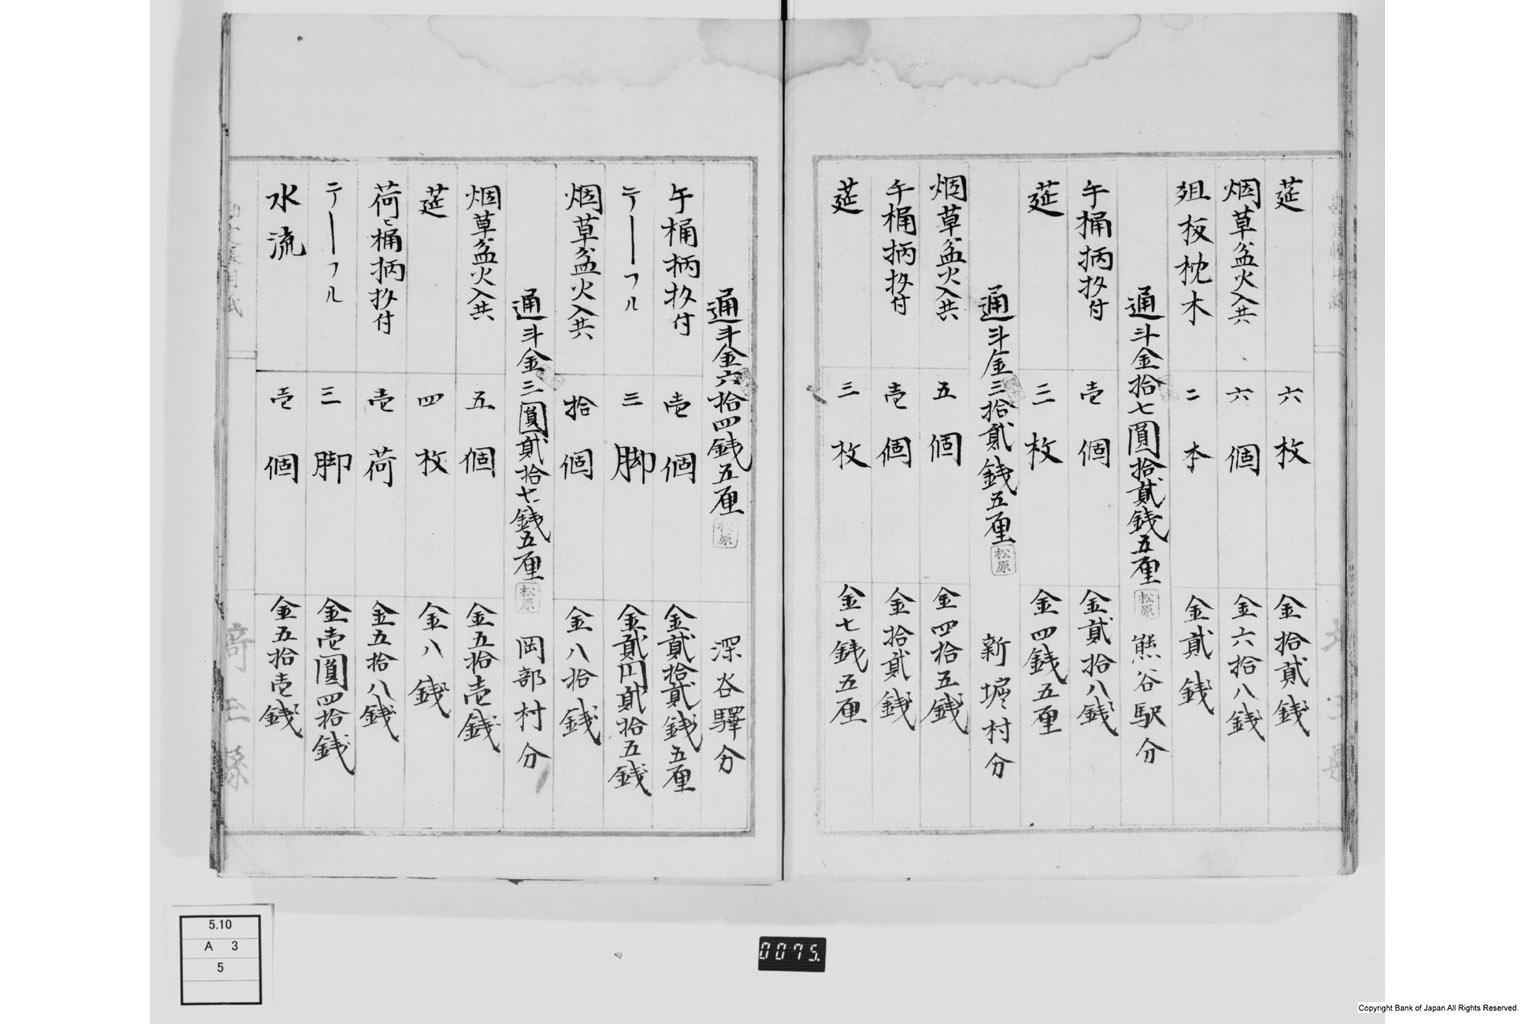 莚 六枚 金拾貳銭
烟草盆火入共 六個 金六拾八銭
爼板枕木 二本 金貳銭
通斗金拾七圓拾貳銭五厘 松原 熊谷駅分
午桶柄杓付 壱個 金貳拾八銭
莚 三枚 金四銭五厘
通斗金三拾貳銭五厘 松原 新堀村分
烟草盆火入共 五個 金四拾五銭
午桶柄杓付 壱個 金拾貳銭
莚 三枚 金七銭五厘
通斗金六拾四銭五厘 松原 深谷驛分
午桶柄杓付 壱個 金貳拾貳銭五厘
テーフル 三脚 金貳円貳拾五銭
烟草盆火入共 拾個 金八拾銭
通斗金三圓貳拾七銭五厘 松原 岡部村分
烟草盆火入共 五個 金五拾壱銭
莚 四枚 金八銭
荷と桶柄杓付 壱荷 金五拾八銭
テーフル 三脚 金壱圓四拾銭
水流 壱個 金五拾壱銭
埼玉縣
5.10
A 3
5
0075.
Copyright Bank of Japan All Rights Reserved.